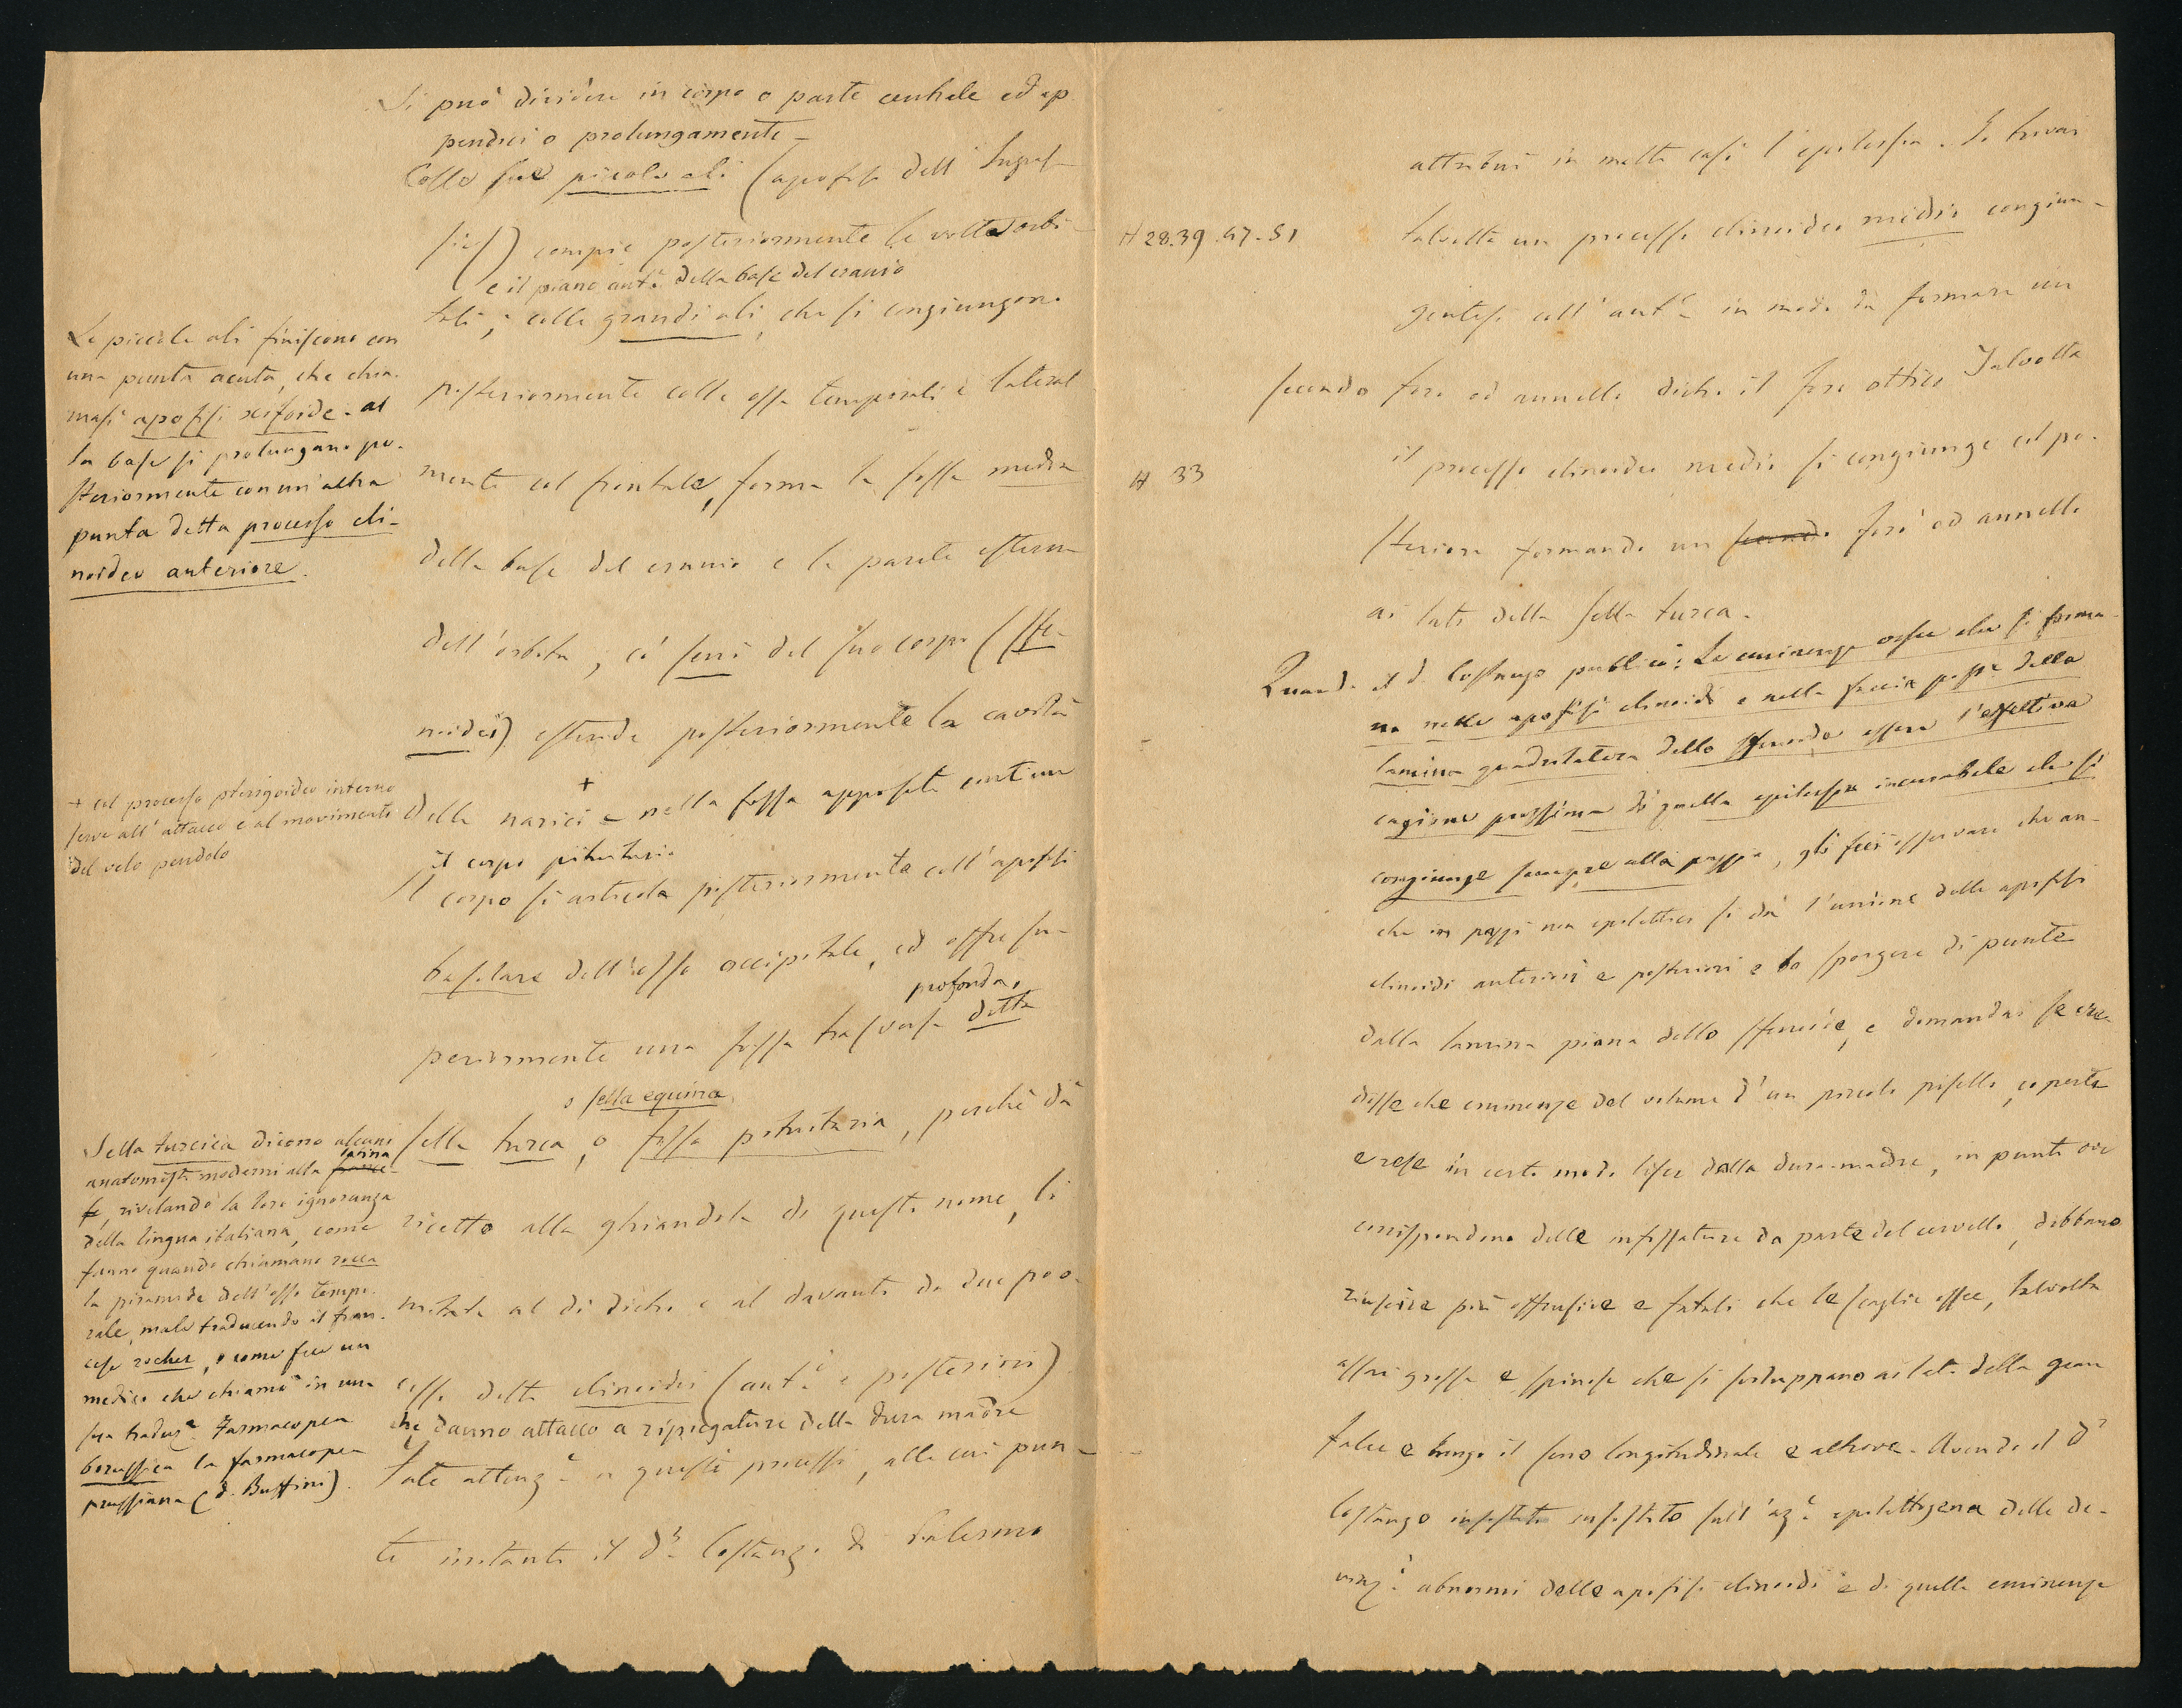 Si può dividere in corpo o parte centrale ed ap-
pendici o prolungamenti -
Colle sue piccole ali (apofisi dell'Ingras-
sias) compie posteriormente le volte orbi-
e il piano ant.e della base del cranio
tali; colle grandi ali, che si congiungono
posteriormente colle ossa temporali e lateral
mente col frontale, forma la fossa media
della base del cranio e la parete esterna
dell'orbita; co' seni del suo corpo (sfe-
noidei) estende posteriormente la cavità
+
delle narici e nella fossa apposita contiene
il corpo pituitario
Il corpo si articola posteriormente coll'apofisi
basilare dell'osso occipitale, ed offre su-
profonda,
periormente una fossa trasversa detta
o sella equina
sella turca, o fossa pituitaria, perchè dà
ricetto alla ghiandola di questo nome, li
mitata al di dietro e al davanti da due pro-
cessi detti clinoidei (ant.i e posteriori)
che danno attacco a ripiegature della dura madre
Fate attenz.e a questi processi, alle cui pun-
te irritanti il d.r Costanzo di Palermo
Le piccole ali finiscono con
una punta acuta, che chia-
masi apofisi xifoide - al
la base si prolungano po-
steriormente con un'altra
punta detta processo cli-
noideo anteriore.
+ col processo pterigoideo interno
serve all'attacco e al movimento
del velo pendolo
Sella turcica dicono alcuni
anatomisti moderni alla
latina
france-
se, rivelando la loro ignoranza
della lingua italiana, come
fanno quando chiamano rocca
la piramide dell'osso tempo-
rale, male traducendo il fran-
cese rocher, o come fece un
medico che chiamò in una
sua traduz.e Farmacopea
borussica la farmacopea
prussiana (d. Buffini).
attribuì in molti casi l'epilessia. Io trovai
H 28.39.47-51
talvolta un processo clinoideo medio congiun-
gentesi coll'ant.e in modo da formare un
secondo foro od annello dietro il foro ottico Talvolta
H 33
il processo clinoideo medio si congiunge col po-
steriore formando un secondo foro od annello
ai lati della sella turca.
Quando il d. Costanzo pubblicò: Le eminenze ossee che si forma-
no nelle apofisi clinoidi e nella faccia post.e della
lamina quadrilatera dello sfenoide essere l'effettiva
cagione prossima di quella epilessia incurabile che si
congiunge sempre alla pazzia, gli feci osservare che an-
che in pazzi non epilettici si dà l'unione delle apofisi
clinoidi anteriori e posteriori e lo sporgere di punte
dalla lamina piana dello sfenoide, e domandai se cre-
desse che eminenze del volume d'un piccolo pisello, coperte
e rese in certo modo lisce dalla dura-madre, in punti ove
corrispondono delle infossature da parte del cervello, debbano
riuscire più offensive e fatali che le scaglie ossee, talvolta
assai grosse e spinose che si sviluppano ai lati della gran
falce e lungo il seno longitudinale e altrove. Avendo il d.r
Costanzo insistito insistito sull'az.e epilettogena delle de-
viaz.i abnormi delle apofisi clinoidi e di quelle eminenze